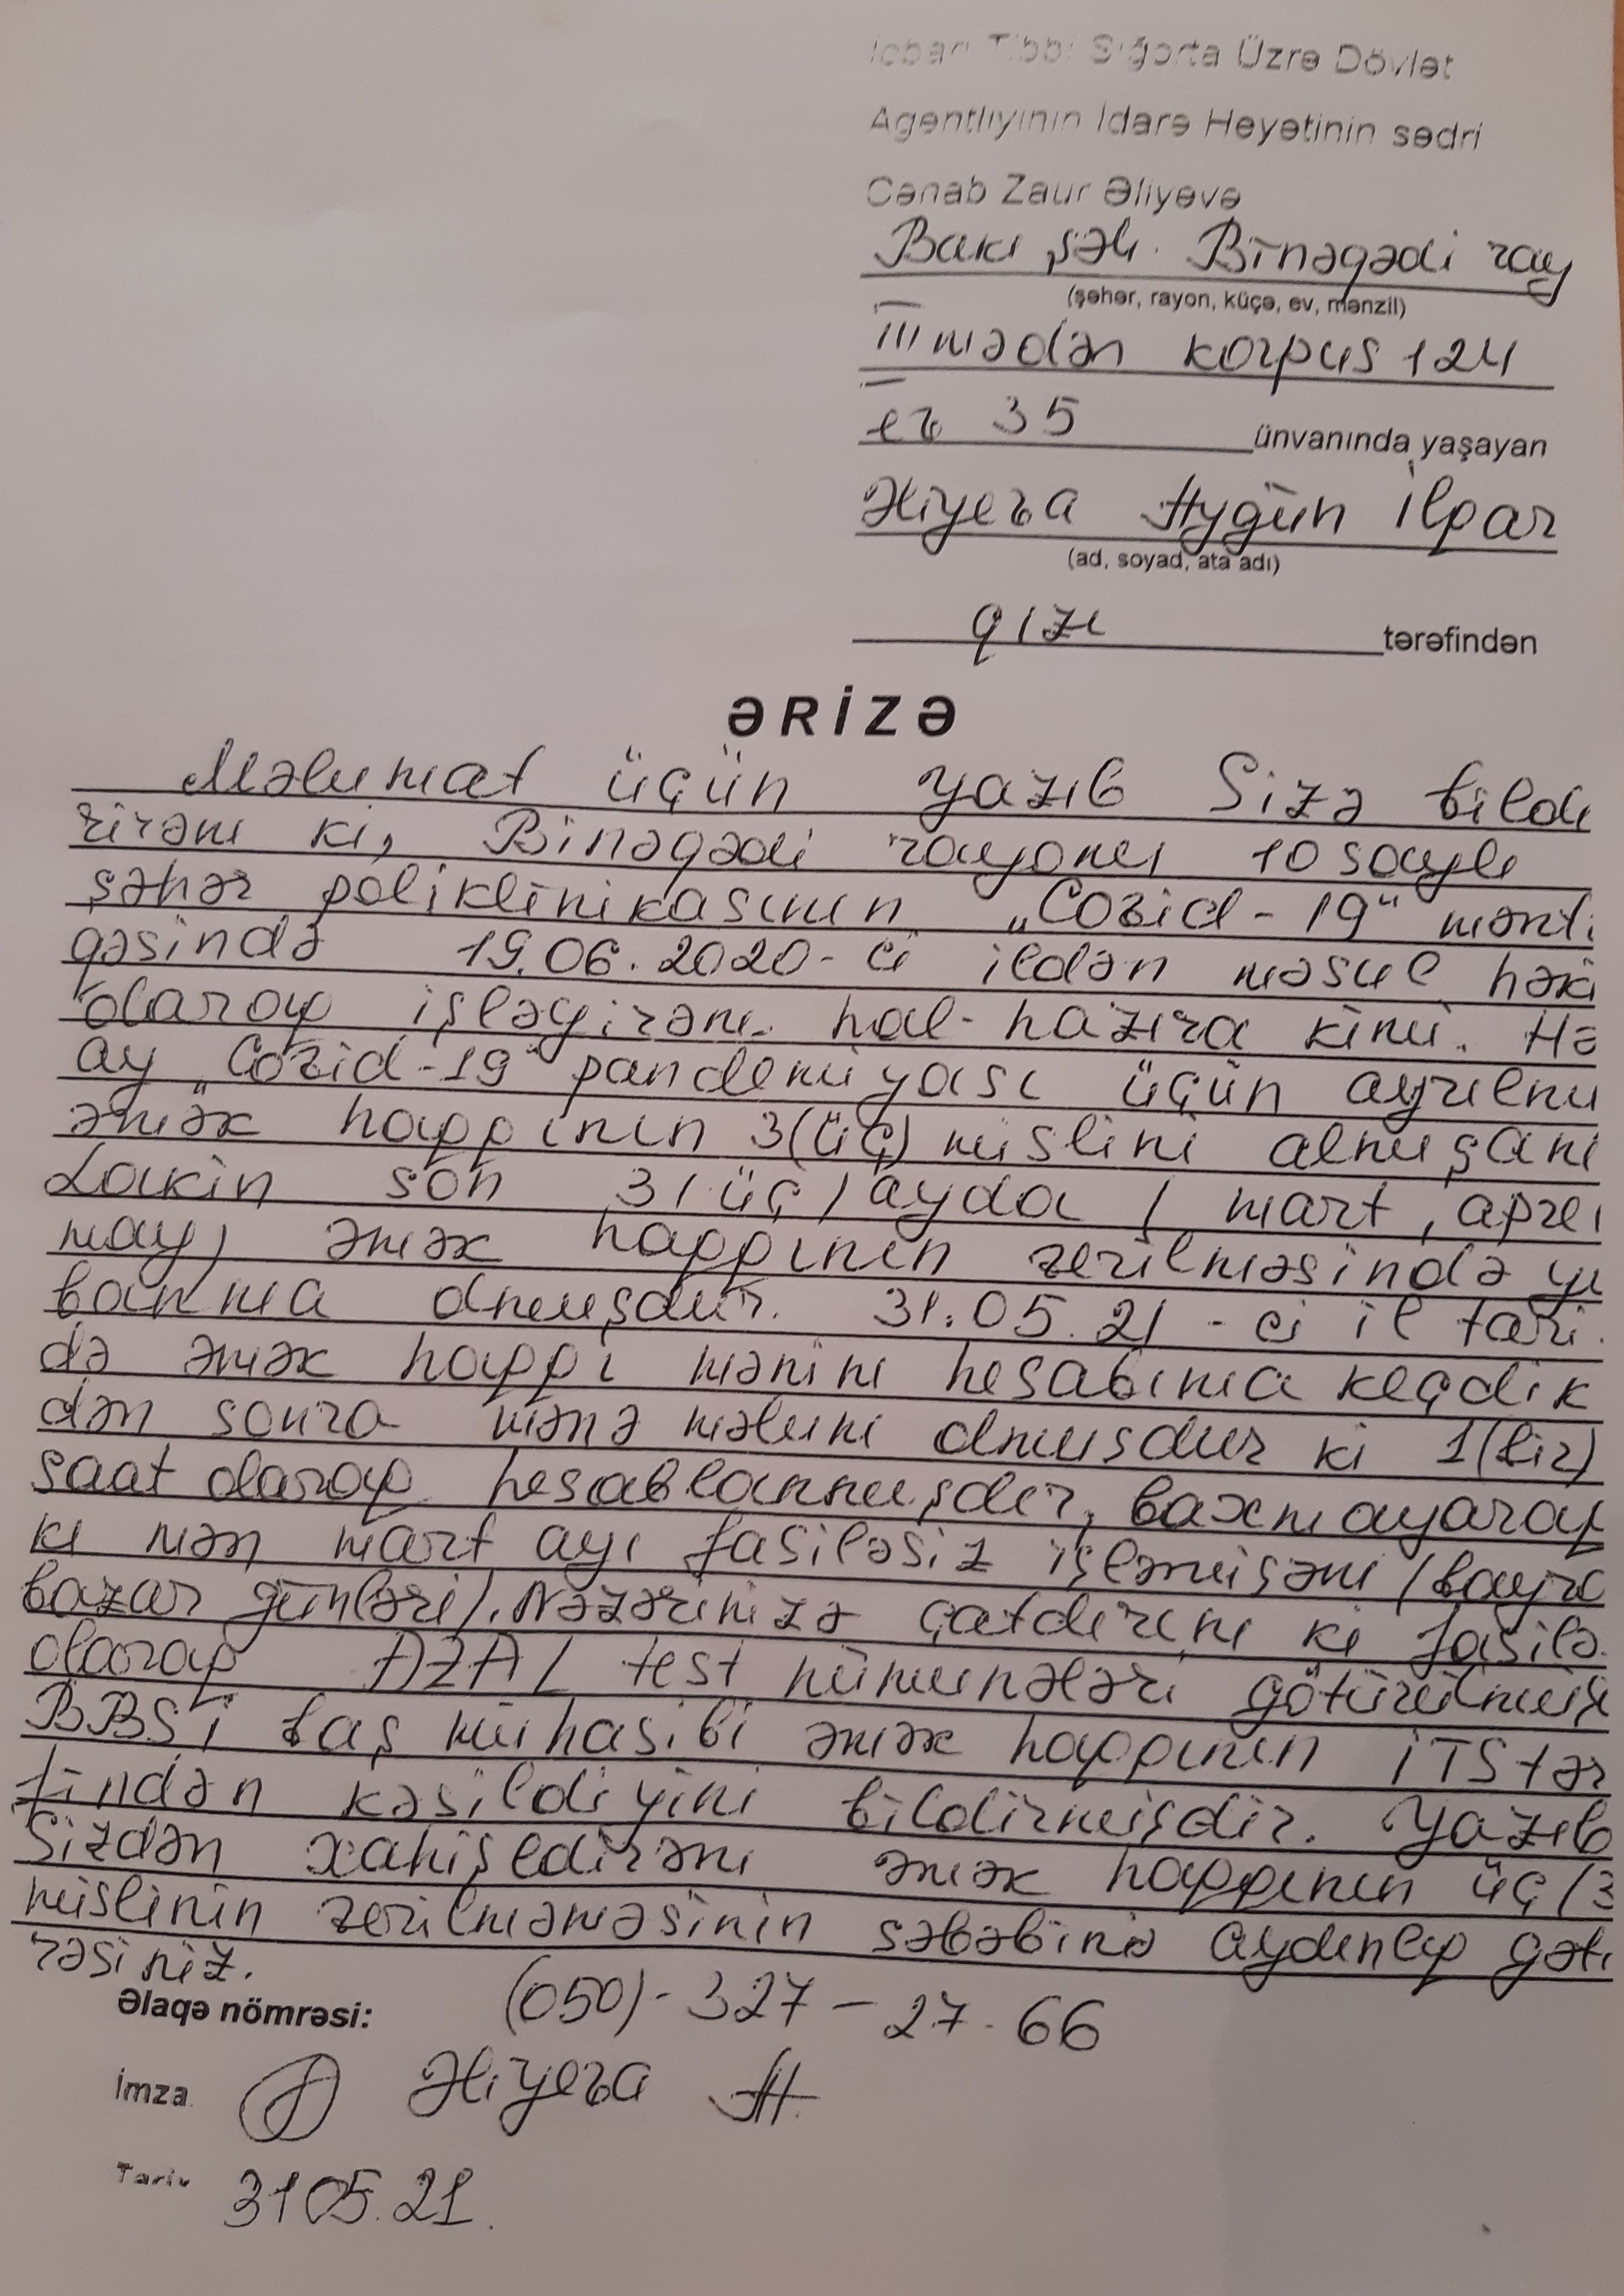 İcbari Tibbi Sığorta Üzrə Dövlət
Agentliyinin İdarə Heyətinin sədri
Cənab Zaur Əliyevə
Bakı şəh. Binəqədi ray
(şəhər, rayon, küçə, ev, mənzil)
III mədən korpus 124
ev 35 ünvanında yaşayan
Əliyeva Aygün İlqar
(ad, soyad, ata adı)
qızı tərəfindən
ƏRİZƏ
Məlumat üçün yazıb Sizə bildi
rirəm ki, Binəqədi rayonu 10 saylı
şəhər poliklinikasının „Covid-19“ məntə
qəsində 19.06.2020-ci ildən məsul həki
olaraq işləyirəm. hal-hazıra kimi. Hə
ay „Covid-19“ pandemiyası üçün ayrılmı
əmək haqqının 3(üç) mislini almışam
Lakin son 3/üç/ayda / mart, aprel
may) əmək haqqının verilməsində ya
banma olmuşdur. 31.05.21-ci il tari
də əmək haqqı mənim hesabıma keçdik
dən sonra mənə məlum olmuşdur ki 1(bir)
saat olaraq hesablanmışdır, baxmayaraq
ki mən mart ayı fasiləsiz işləmişəm /bayra
bazar günləri/. Nəzərinizə çatdırım ki fasilə
olaraq AZAL test nümunələri götürülmüş
BBSİ baş mühasibi əmək haqqının İTS tər
findən kəsildiyini bildirmişdir. Yazıb
Sizdən xahiş edirəm əmək haqqının üç/3
mislinin verilməməsinin səbəbinə aydınlıq gəti
rəsiniz.
Əlaqə nömrəsi: (050)-327-27-66
İmza Əliyeva A.
Tarix 31 05.21.